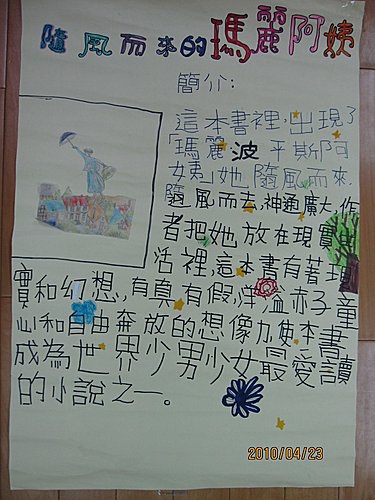 隨風而來的瑪麗阿姨
簡介：
這本書裡，出現了
「瑪麗波平斯阿
姨」她隨風而來，
隨風而去，神通廣大，作
者把她放在現實
生活裡，這本書有著現
實和幻想，有真有假，洋溢赤子童
心和自由奔放的想像力，使本書
成為世界少男少女最愛讀
的小說之一。
2010/04/23